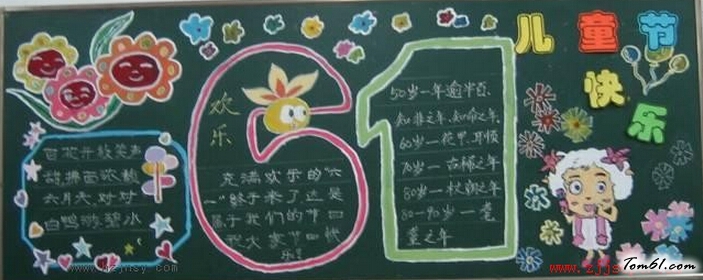 儿童节
快
乐
欢
乐
百花开放笑声
六月天,对对
白鸭游绿水
充满欢乐的六
一终于来了这是
属于我们的节日
祝大家节日快
乐!
50岁一年逾半百、
知非之年、知命之年、
60岁一花甲、耳顺
70岁一古稀之年
80岁一杖朝之年
80-90岁一耄
耋之年
Tom61.com